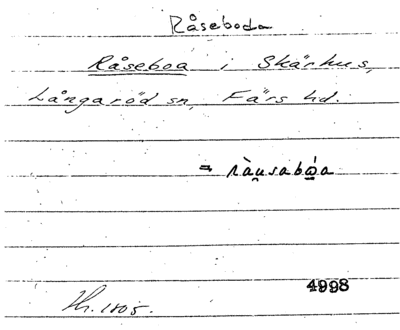 Råseboda
Råseboa i Skärhus,
Långaröd sn, Färs hd.
= ràu̯sabó̱a
4998
Hr. 1805.